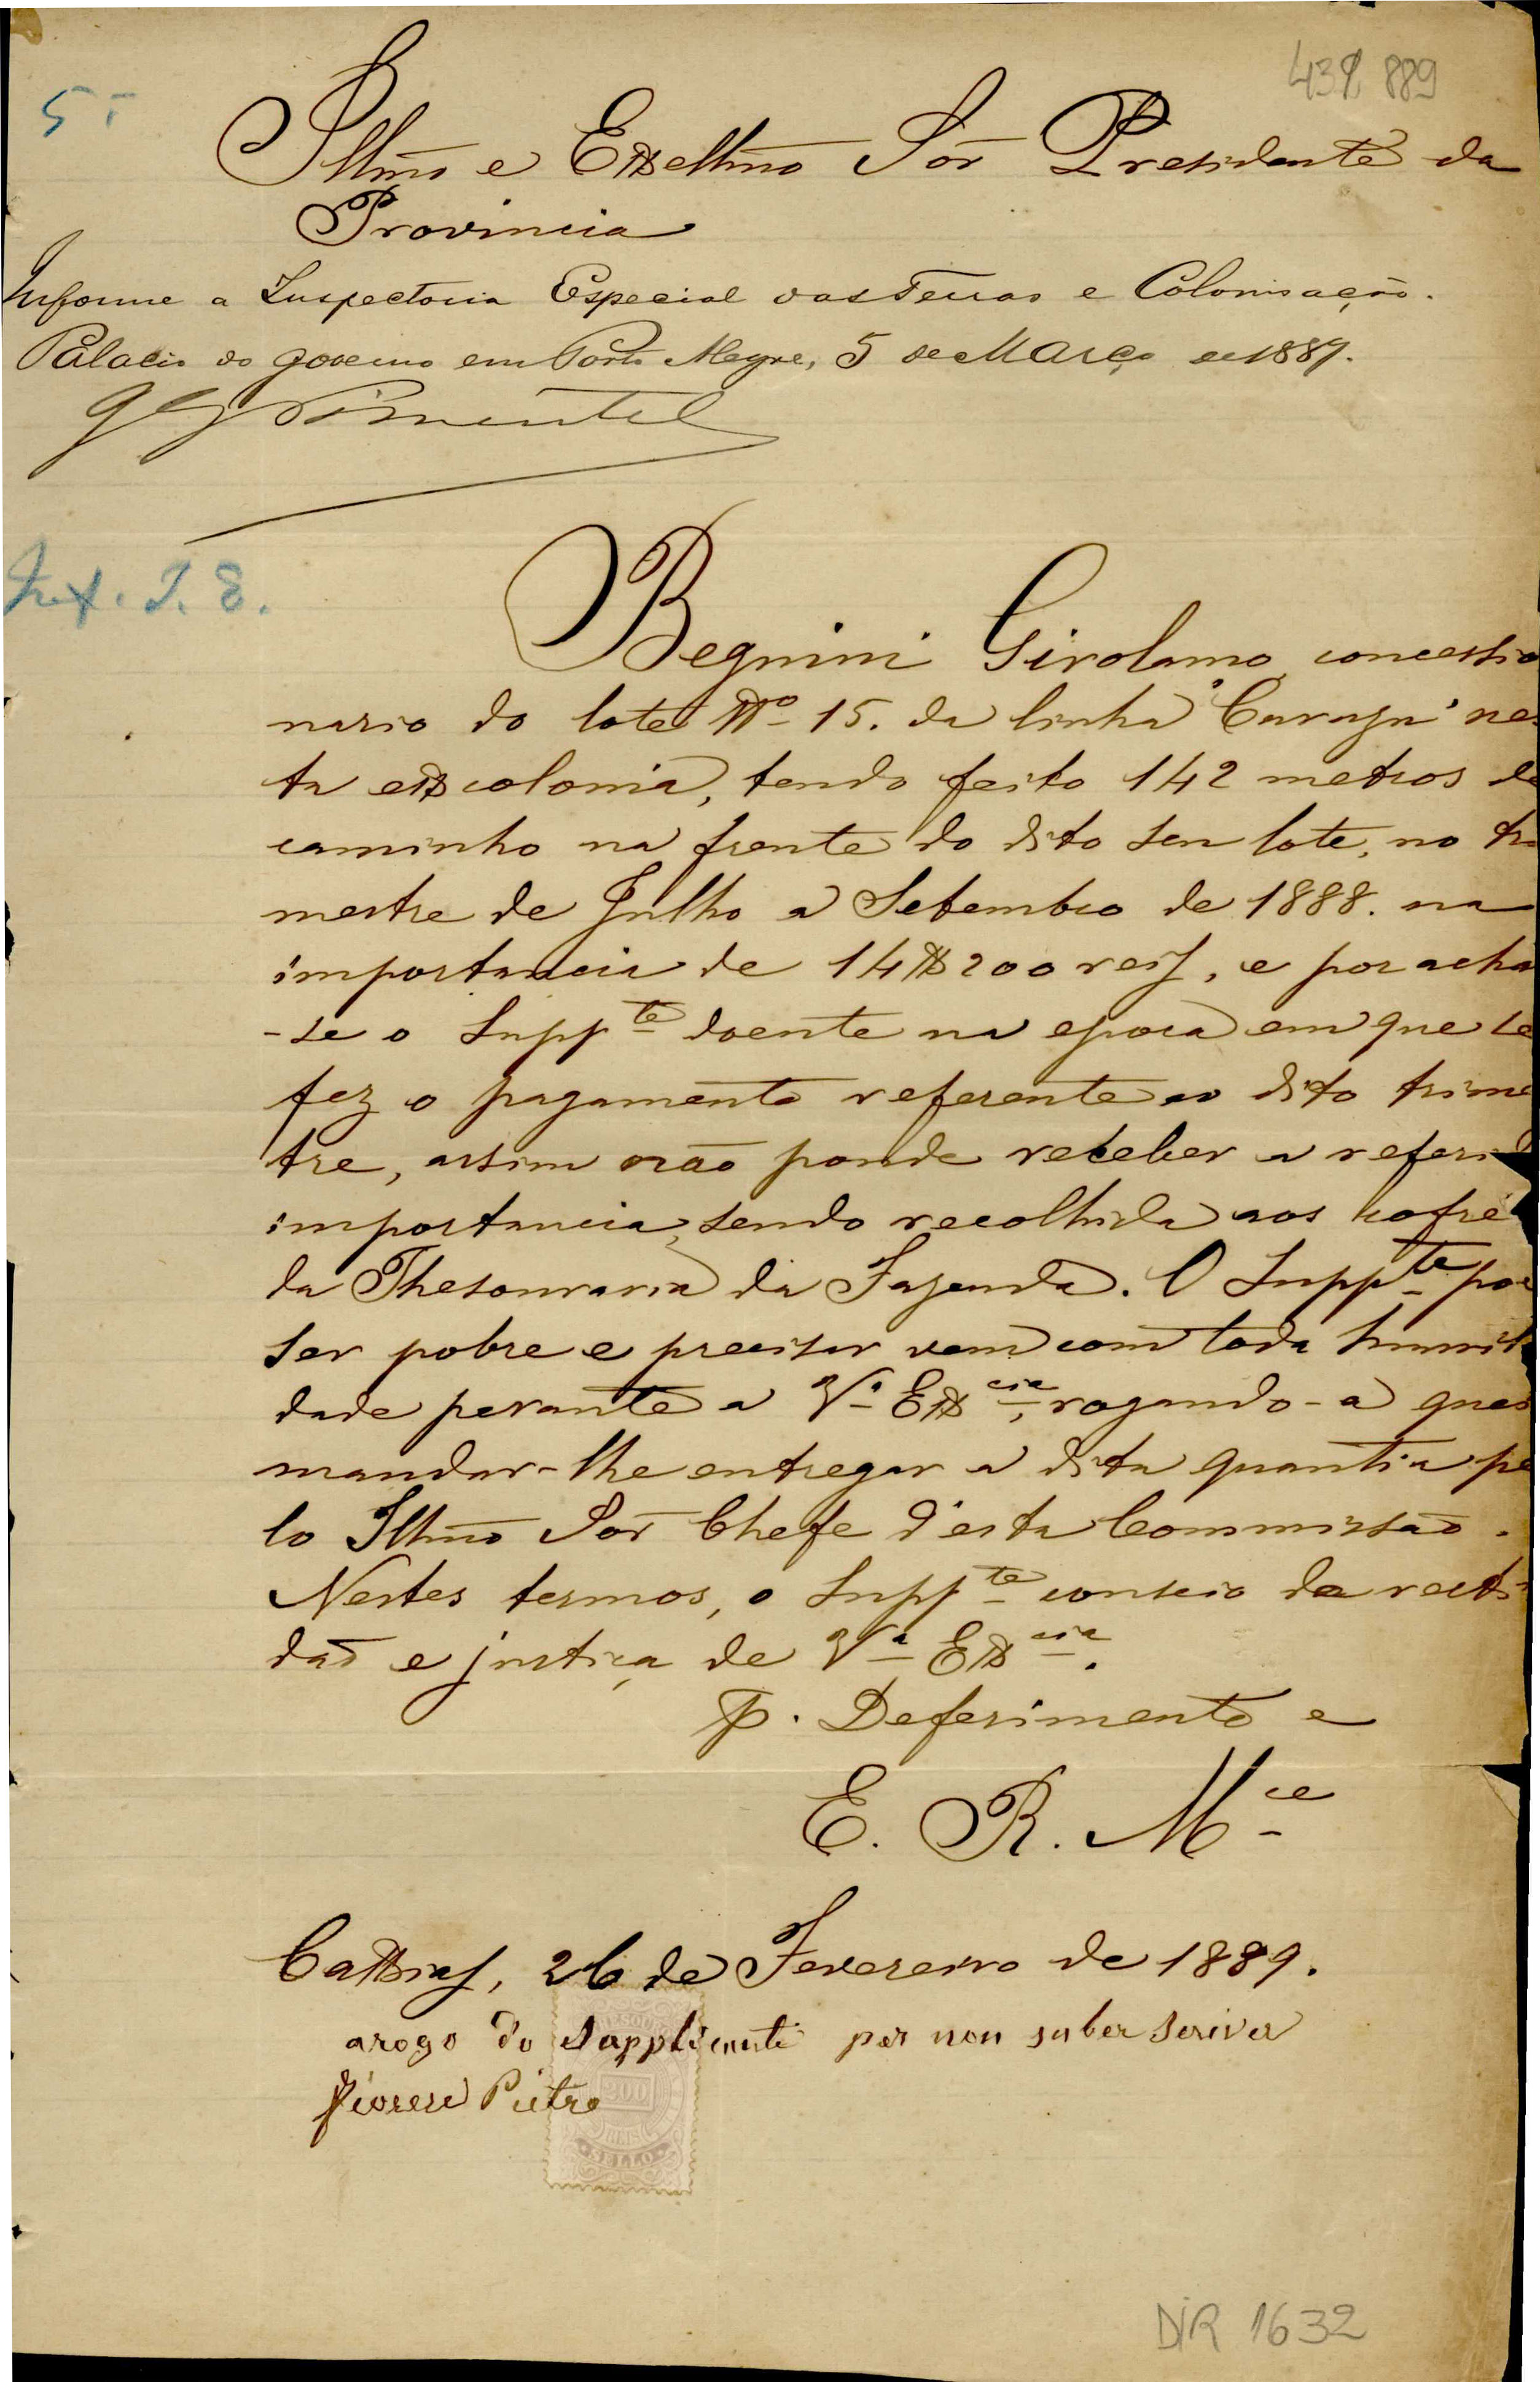 438 889
5ª
Illmo e Exellmo Sōr Presidente da
Provincia
Informe a Inspectoria Especial das Terras e Colonisação.
Palacio do governo em Porto Alegre, 5 de Março de 1889.
Pimentel
Inf. I. E.
Begnini Girolamo, concessio
nario do lote Nº 15. da linha "Curuzu" nes
ta ex colonia, tendo feito 142 metros de
caminho na frente do dito seu lote, no tri
mestre de Julho a Setembro de 1888. na
importancia de 14$200 reis, e por achar
-se o Suppte doente na epoca em que se
fez o pagamento referente ao dito trimes
tre, assim não poude receber a referida
importancia, sendo recolhida aos cofres
da Thesouraria da Fazenda. O Suppte por
ser pobre e precisar vem com toda humil
dade perante a Vª Excia, rogando-a queira
mandar-lhe entregar a dita quantia pe
lo Illmo Sōr Chefe d'esta Commissão.
Nestes termos, o Suppte conscio da recti
dão e justiça de Vª Excia.
P. Deferimento e
E. R. Mce
Caxias, 26 de Fevereiro de 1889.
arogo do Supplicante per non saber scriver
Fiorese Pietro
200
REIS
SELLO
DIR 1632